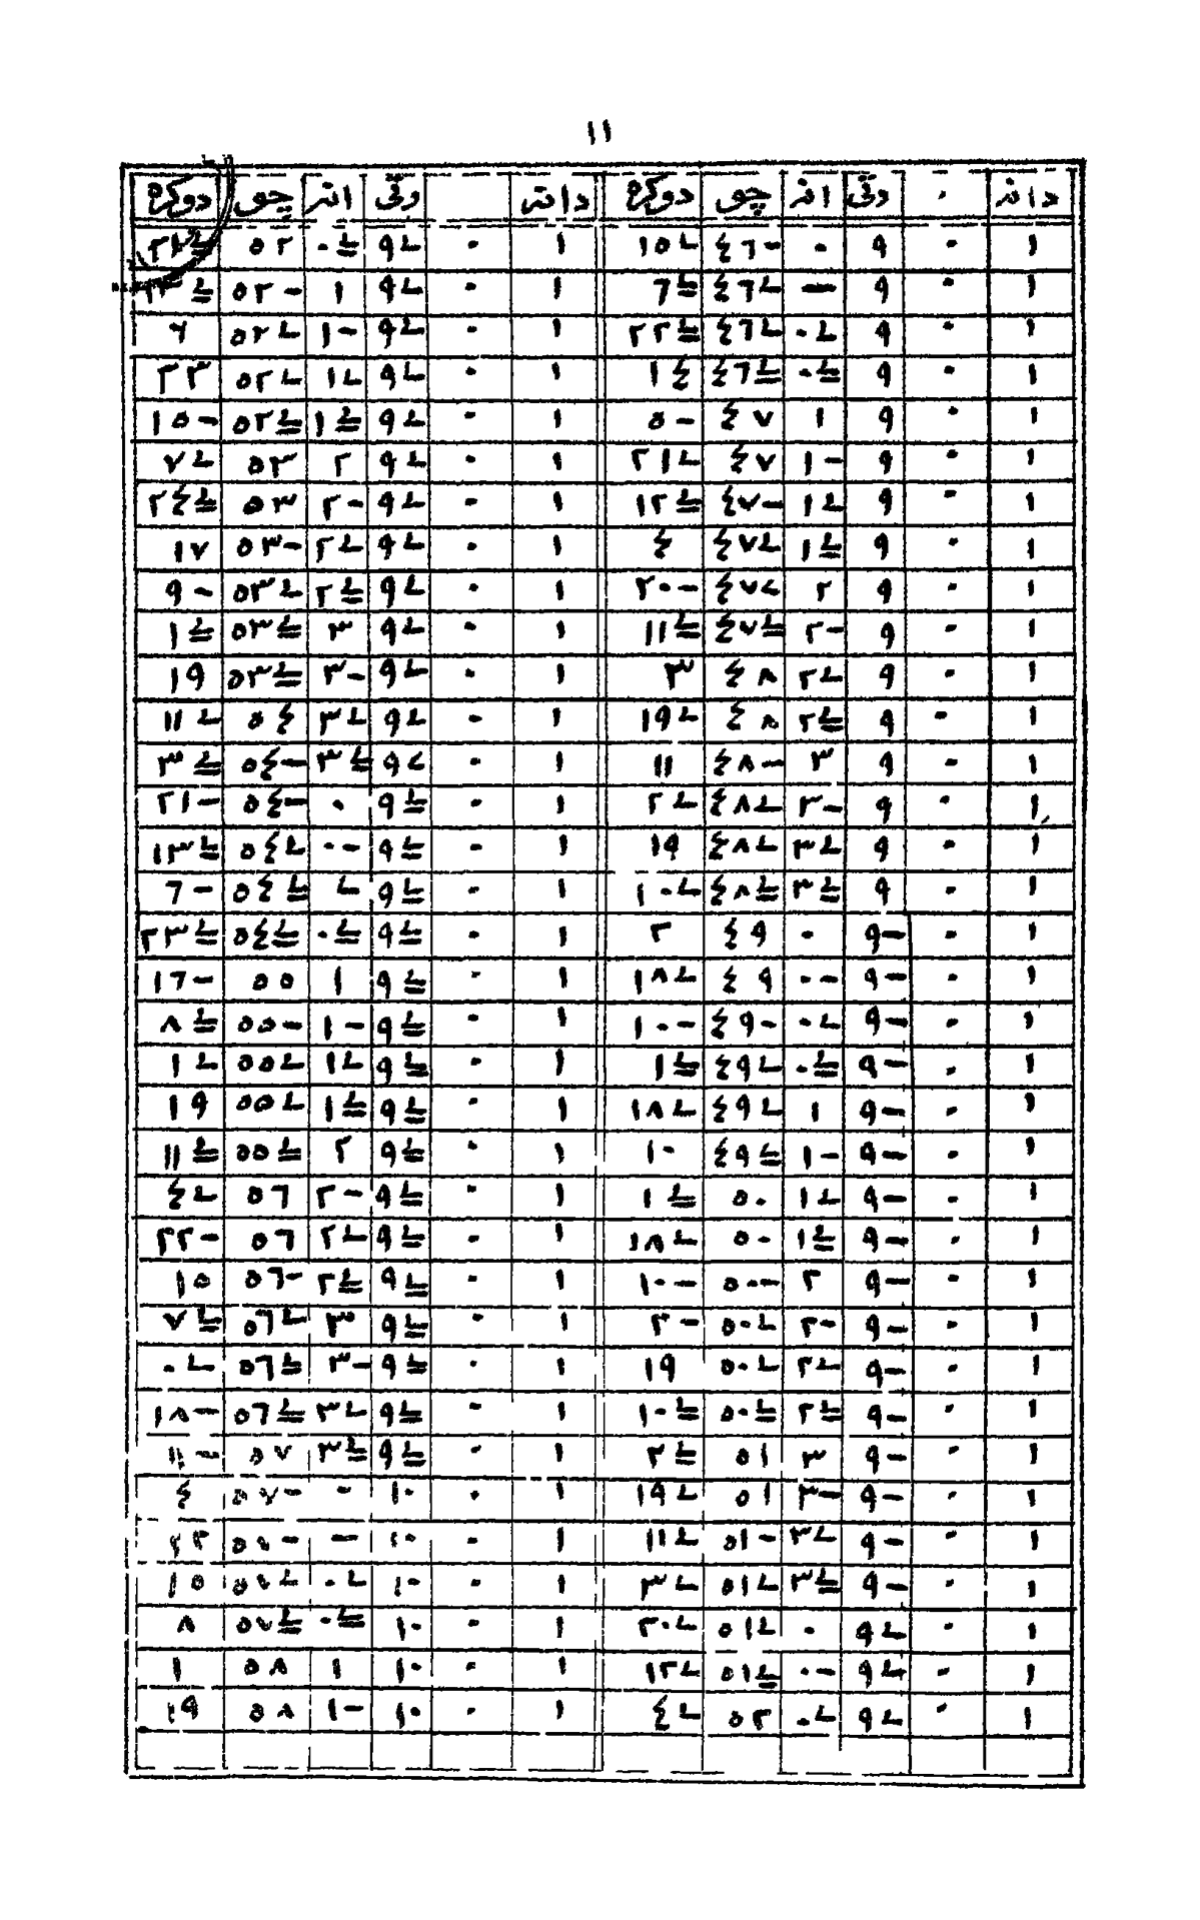 ١١
دانه ٠ وقي انه چو دوكره دانه وقي انه چو دوكره
١ ٠ ٩ ٠ ٤٦- ١٥∠ ١ ٠ ٩∠ ٠≤ ٥٢
١ ٠ ٩ - ٤٦∠ ٦≤ ١ ٠ ٩∠ ١ ٥٢-
١ ٠ ٩ ٠∠ ٤٦∠ ٢٢≤ ١ ٠ ٩∠ ١- ٥٢∠ ٦
١ ٠ ٩ ٠≤ ٤٦≤ ١٤ ١ ٠ ٩∠ ١∠ ٥٢∠ ٢٣
١ ٠ ٩ ١ ٤٧ ٥- ١ ٠ ٩∠ ١≤ ٥٢≤ ١٥-
١ ٠ ٩ ١- ٤٧ ٢١∠ ١ ٠ ٩∠ ٢ ٥٣ ٧∠
١ ٠ ٩ ١∠ ٤٧- ١٢≤ ١ ٠ ٩∠ ٢- ٥٣ ٢٤≤
١ ٠ ٩ ١≤ ٤٧∠ ٤ ١ ٠ ٩∠ ٢∠ ٥٣- ١٧
١ ٠ ٩ ٢ ٤٧∠ ٢٠- ١ ٠ ٩∠ ٢≤ ٥٣∠ ٩-
١ ٠ ٩ ٢- ٤٧≤ ١١≤ ١ ٠ ٩∠ ٣ ٥٣≤ ١≤
١ ٠ ٩ ٢∠ ٤٨ ٣ ١ ٠ ٩∠ ٣- ٥٣≤ ١٩
١ ٠ ٩ ٢≤ ٤٨ ١٩∠ ١ ٠ ٩∠ ٣∠ ٥٤ ١١∠
١ ٠ ٩ ٣ ٤٨- ١١ ١ ٠ ٩∠ ٣≤ ٥٤- ٣≤
١ ٠ ٩ ٣- ٤٨∠ ٢∠ ١ ٠ ٩≤ ٠ ٥٤- ٢١-
١ ٠ ٩ ٣∠ ٤٨∠ ١٩ ١ ٠ ٩≤ ٠- ٥٤∠ ١٣≤
١ ٠ ٩ ٣≤ ٤٨≤ ١٠∠ ١ ٠ ٩≤ ∠ ٥٤≤ ٦-
١ ٠ ٩- ٠ ٤٩ ٢ ١ ٠ ٩≤ ٠≤ ٥٤≤ ٢٣≤
١ ٠ ٩- ٠- ٤٩ ١٨∠ ١ ٠ ٩≤ ١ ٥٥ ١٦-
١ ٠ ٩- ٠∠ ٤٩- ١٠- ١ ٠ ٩≤ ١- ٥٥- ٨≤
١ ٠ ٩- ٠≤ ٤٩∠ ١≤ ١ ٠ ٩≤ ١∠ ٥٥∠ ١∠
١ ٠ ٩- ١ ٤٩∠ ١٨∠ ١ ٠ ٩≤ ١≤ ٥٥∠ ١٩
١ ٠ ٩- ١- ٤٩≤ ١٠ ١ ٠ ٩≤ ٢ ٥٥≤ ١١≤
١ ٠ ٩- ١∠ ٥٠ ١≤ ١ ٠ ٩≤ ٢- ٥٦ ٤∠
١ ٠ ٩- ١≤ ٥٠ ١٨∠ ١ ٠ ٩≤ ٢∠ ٥٦ ٢٢-
١ ٠ ٩- ٢ ٥٠- ١٠- ١ ٠ ٩≤ ٢≤ ٥٦- ١٥
١ ٠ ٩- ٢- ٥٠∠ ٢- ١ ٠ ٩≤ ٣ ٥٦∠ ٧≤
١ ٠ ٩- ٢∠ ٥٠∠ ١٩ ١ ٠ ٩≤ ٣- ٥٦≤ ٠∠
١ ٠ ٩- ٢≤ ٥٠≤ ١٠≤ ١ ٠ ٩≤ ٣∠ ٥٦≤ ١٨-
١ ٠ ٩- ٣ ٥١ ٢≤ ١ ٠ ٩≤ ٣≤ ٥٧ ١١-
١ ٠ ٩- ٣- ٥١ ١٩∠ ١ ٠ ١٠ ٠ ٥٧- ٤
١ ٠ ٩- ٣∠ ٥١- ١١∠ ١ ٠ ١٠ - ٥٧- ٢٢
١ ٠ ٩- ٣≤ ٥١∠ ٣∠ ١ ٠ ١٠ ٠∠ ٥٧∠ ١٥
١ ٠ ٩∠ ٠ ٥١∠ ٢٠∠ ١ ٠ ١٠ ٠≤ ٥٧≤ ٨
١ ٠ ٩∠ ٠- ٥١≤ ١٢∠ ١ ٠ ١٠ ١ ٥٨ ١
١ ٠ ٩∠ ٠∠ ٥٢ ٤∠ ١ ٠ ١٠ ١- ٥٨ ١٩